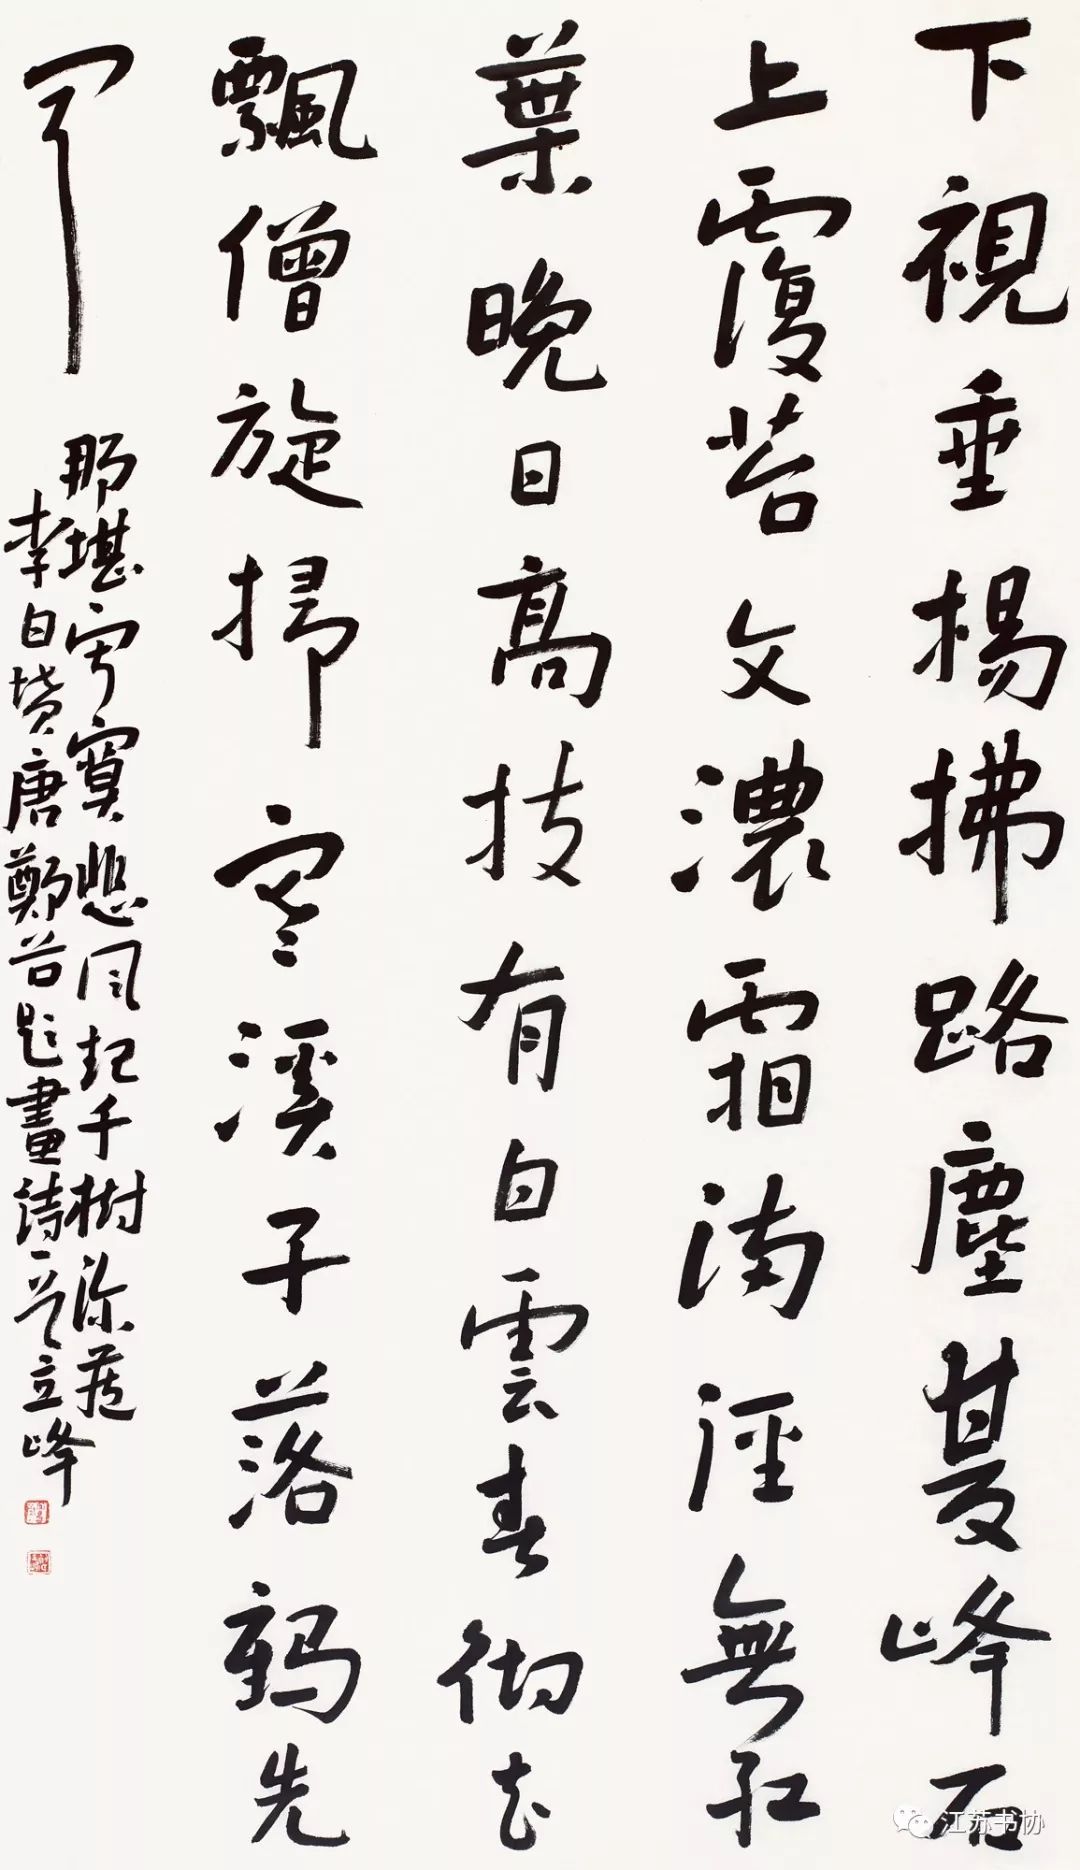 下視垂楊拂路塵雙峰石
上覆苔文濃霜滿徑無紅
葉晚日高枝有白雲春砌花
飄僧旋掃寒溪子落鶴先
聞
那堪寂寞悲风起千樹深藏
李白墳唐鄭谷題畫詩一首立峰
江苏书协